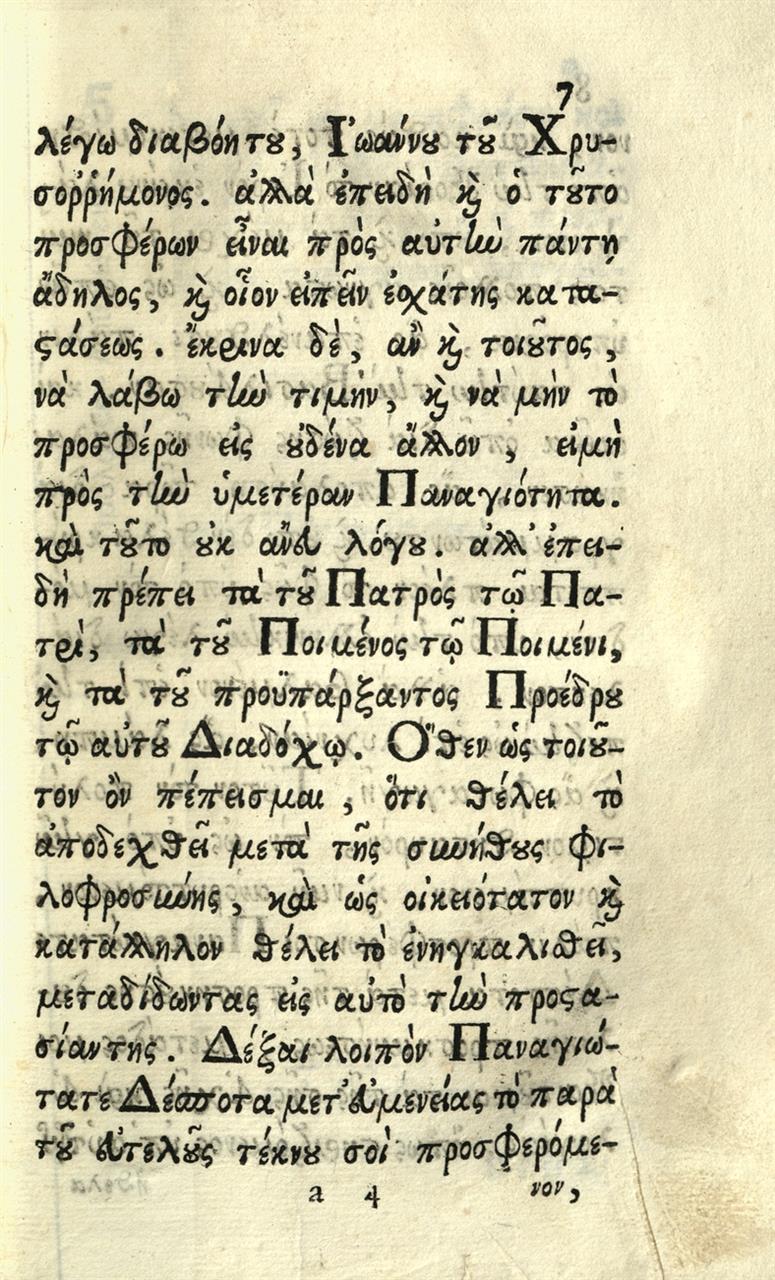 7
λέγω διαβόητȣ, Ἰωάννȣ τȣ͂ Χρυ-
σοῤῥήμονος. ἀλλὰ ἐπειδὴ ϗ̀ ὁ τȣ͂το
προσφέρων εἶναι πρὸς αὐτὼ πάντη
ἄδηλος, ϗ̀ οἷον εἰπεῖν ἐσχάτης κατα-
ϛάσεως. ἔκρινα δὲ, ἂν ϗ̀ τοιȣ͂τος,
νὰ λάβω τὴν τιμήν, ϗ̀ νὰ μὴν τὸ
προσφέρω εἰς ȣ̓δένα ἄλλον, εἰμὴ
πρὸς τὴν ὑμετέραν Παναγιότητα.
καὶ τȣ͂το ȣ̓κ ἄνευ λόγȣ. ἀλλ' ἐπει-
δὴ πρέπει τὰ τȣ͂ Πατρὸς τῷ Πα-
τρὶ, τὰ τȣ͂ Ποιμένος τῷ Ποιμένι,
ϗ̀ τὰ τȣ͂ προϋπάρξαντος Προέδρȣ
τῷ αὐτȣ͂ Διαδόχῳ. Ὅθεν ὡς τοιȣ͂-
τον ὂν πέπεισμαι, ὅτι θέλει τὸ
ἀποδεχθεῖ μετὰ τῆς συνήθȣς φι-
λοφροσύνης, καὶ ὡς οἰκειότατον ϗ̀
κατάλληλον θέλει τὸ ἐνηγκαλιθεῖ,
μεταδίδωντας εἰς αὐτὸ τὴν προϛα-
σίαν της. Δέξαι λοιπὸν Παναγιώ-
τατε Δέσποτα μετ' εὐμενείας τὸ παρὰ
τȣ͂ εὐτελȣ͂ς τέκνȣ σοὶ προσφερόμε-
a 4 νον,